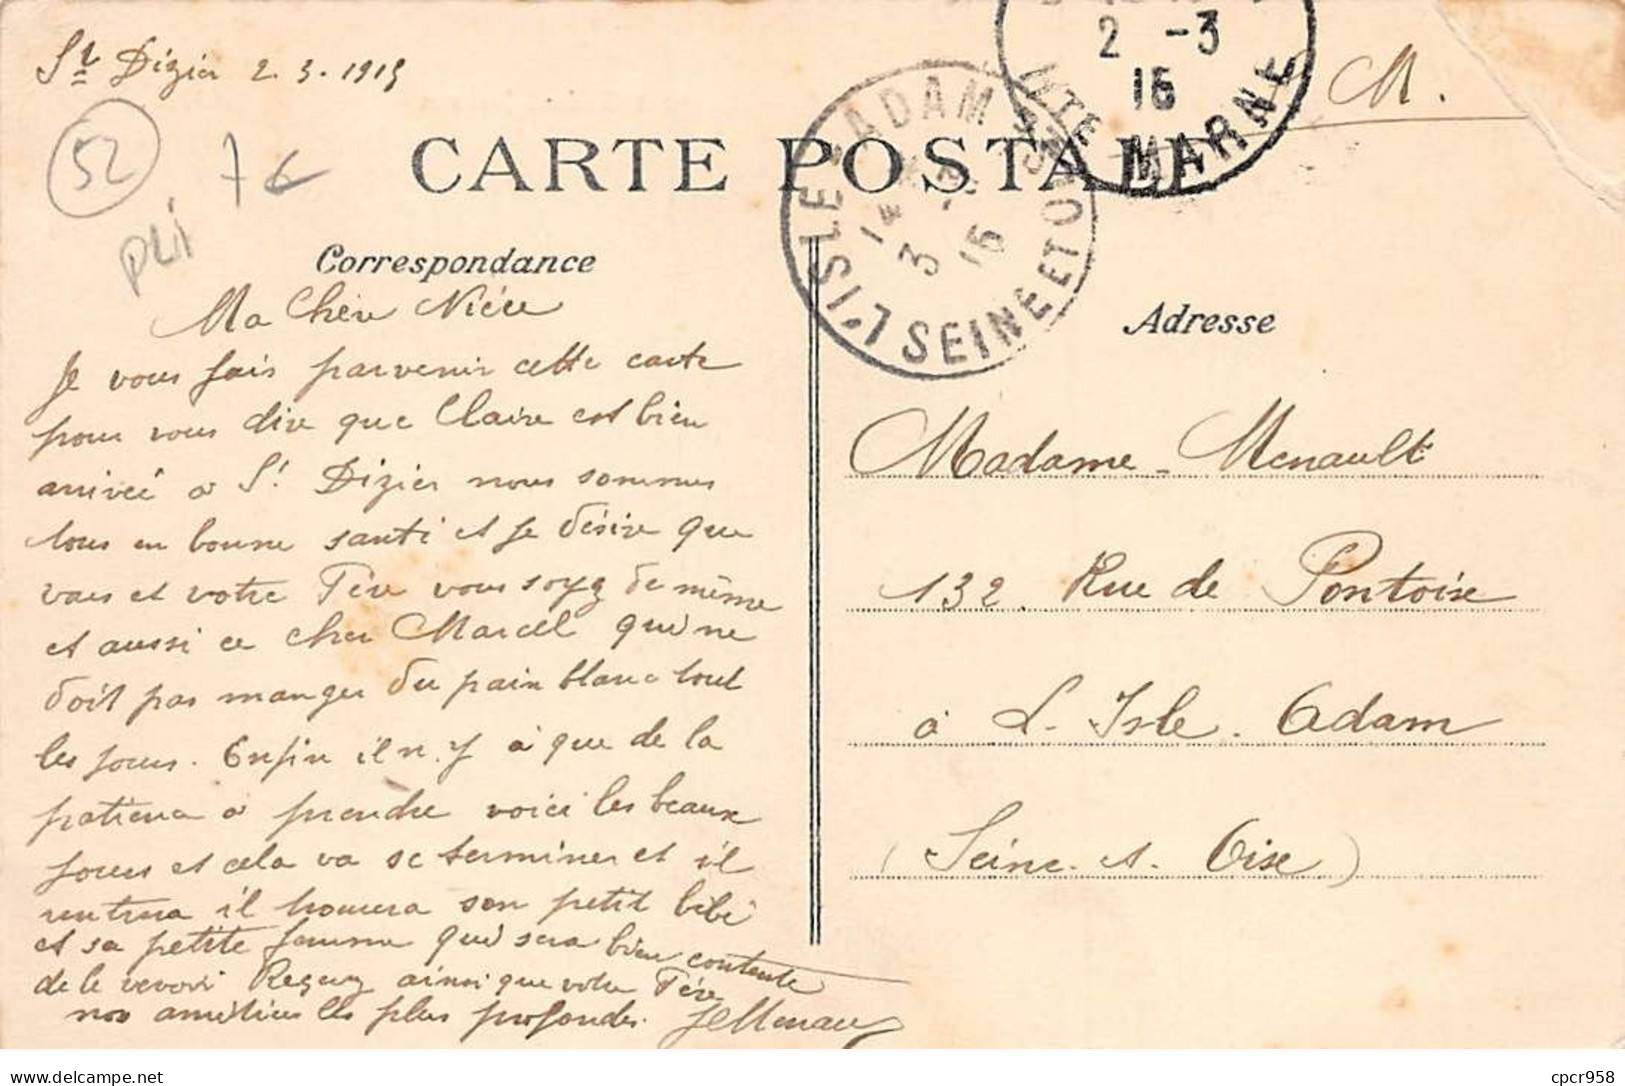 St Dizier 2.3.1915
52
7€
PLI
M.
2 -3
15
HTE MARNE
L'ISLE ADAM SEINE ET OISE
3
15
CARTE POSTALE
Correspondance
Ma Chère Nièce
Je vous fais parvenir cette carte
pour vous dire que Claire est bien
arrivée à St Dizier nous sommes
tous en bonne santé et je désire que
vous et votre Père vous soyez de même
et aussi ce cher Marcel qui ne
doit pas manger du pain blanc tout
les jours. Enfin il n'y à que de la
patience à prendre voici les beaux
jours et cela va se terminer et il
rentrera il trouvera son petit bébé
et sa petite femme qui sera bien contente
de le revoir Reçevez ainsi que votre Père
nos amitiées les plus profondes. Menault
Adresse
Madame Menault
132 Rue de Pontoise
à L'Isle-Adam
(Seine-et-Oise)
Delcampe.net
cpcr958